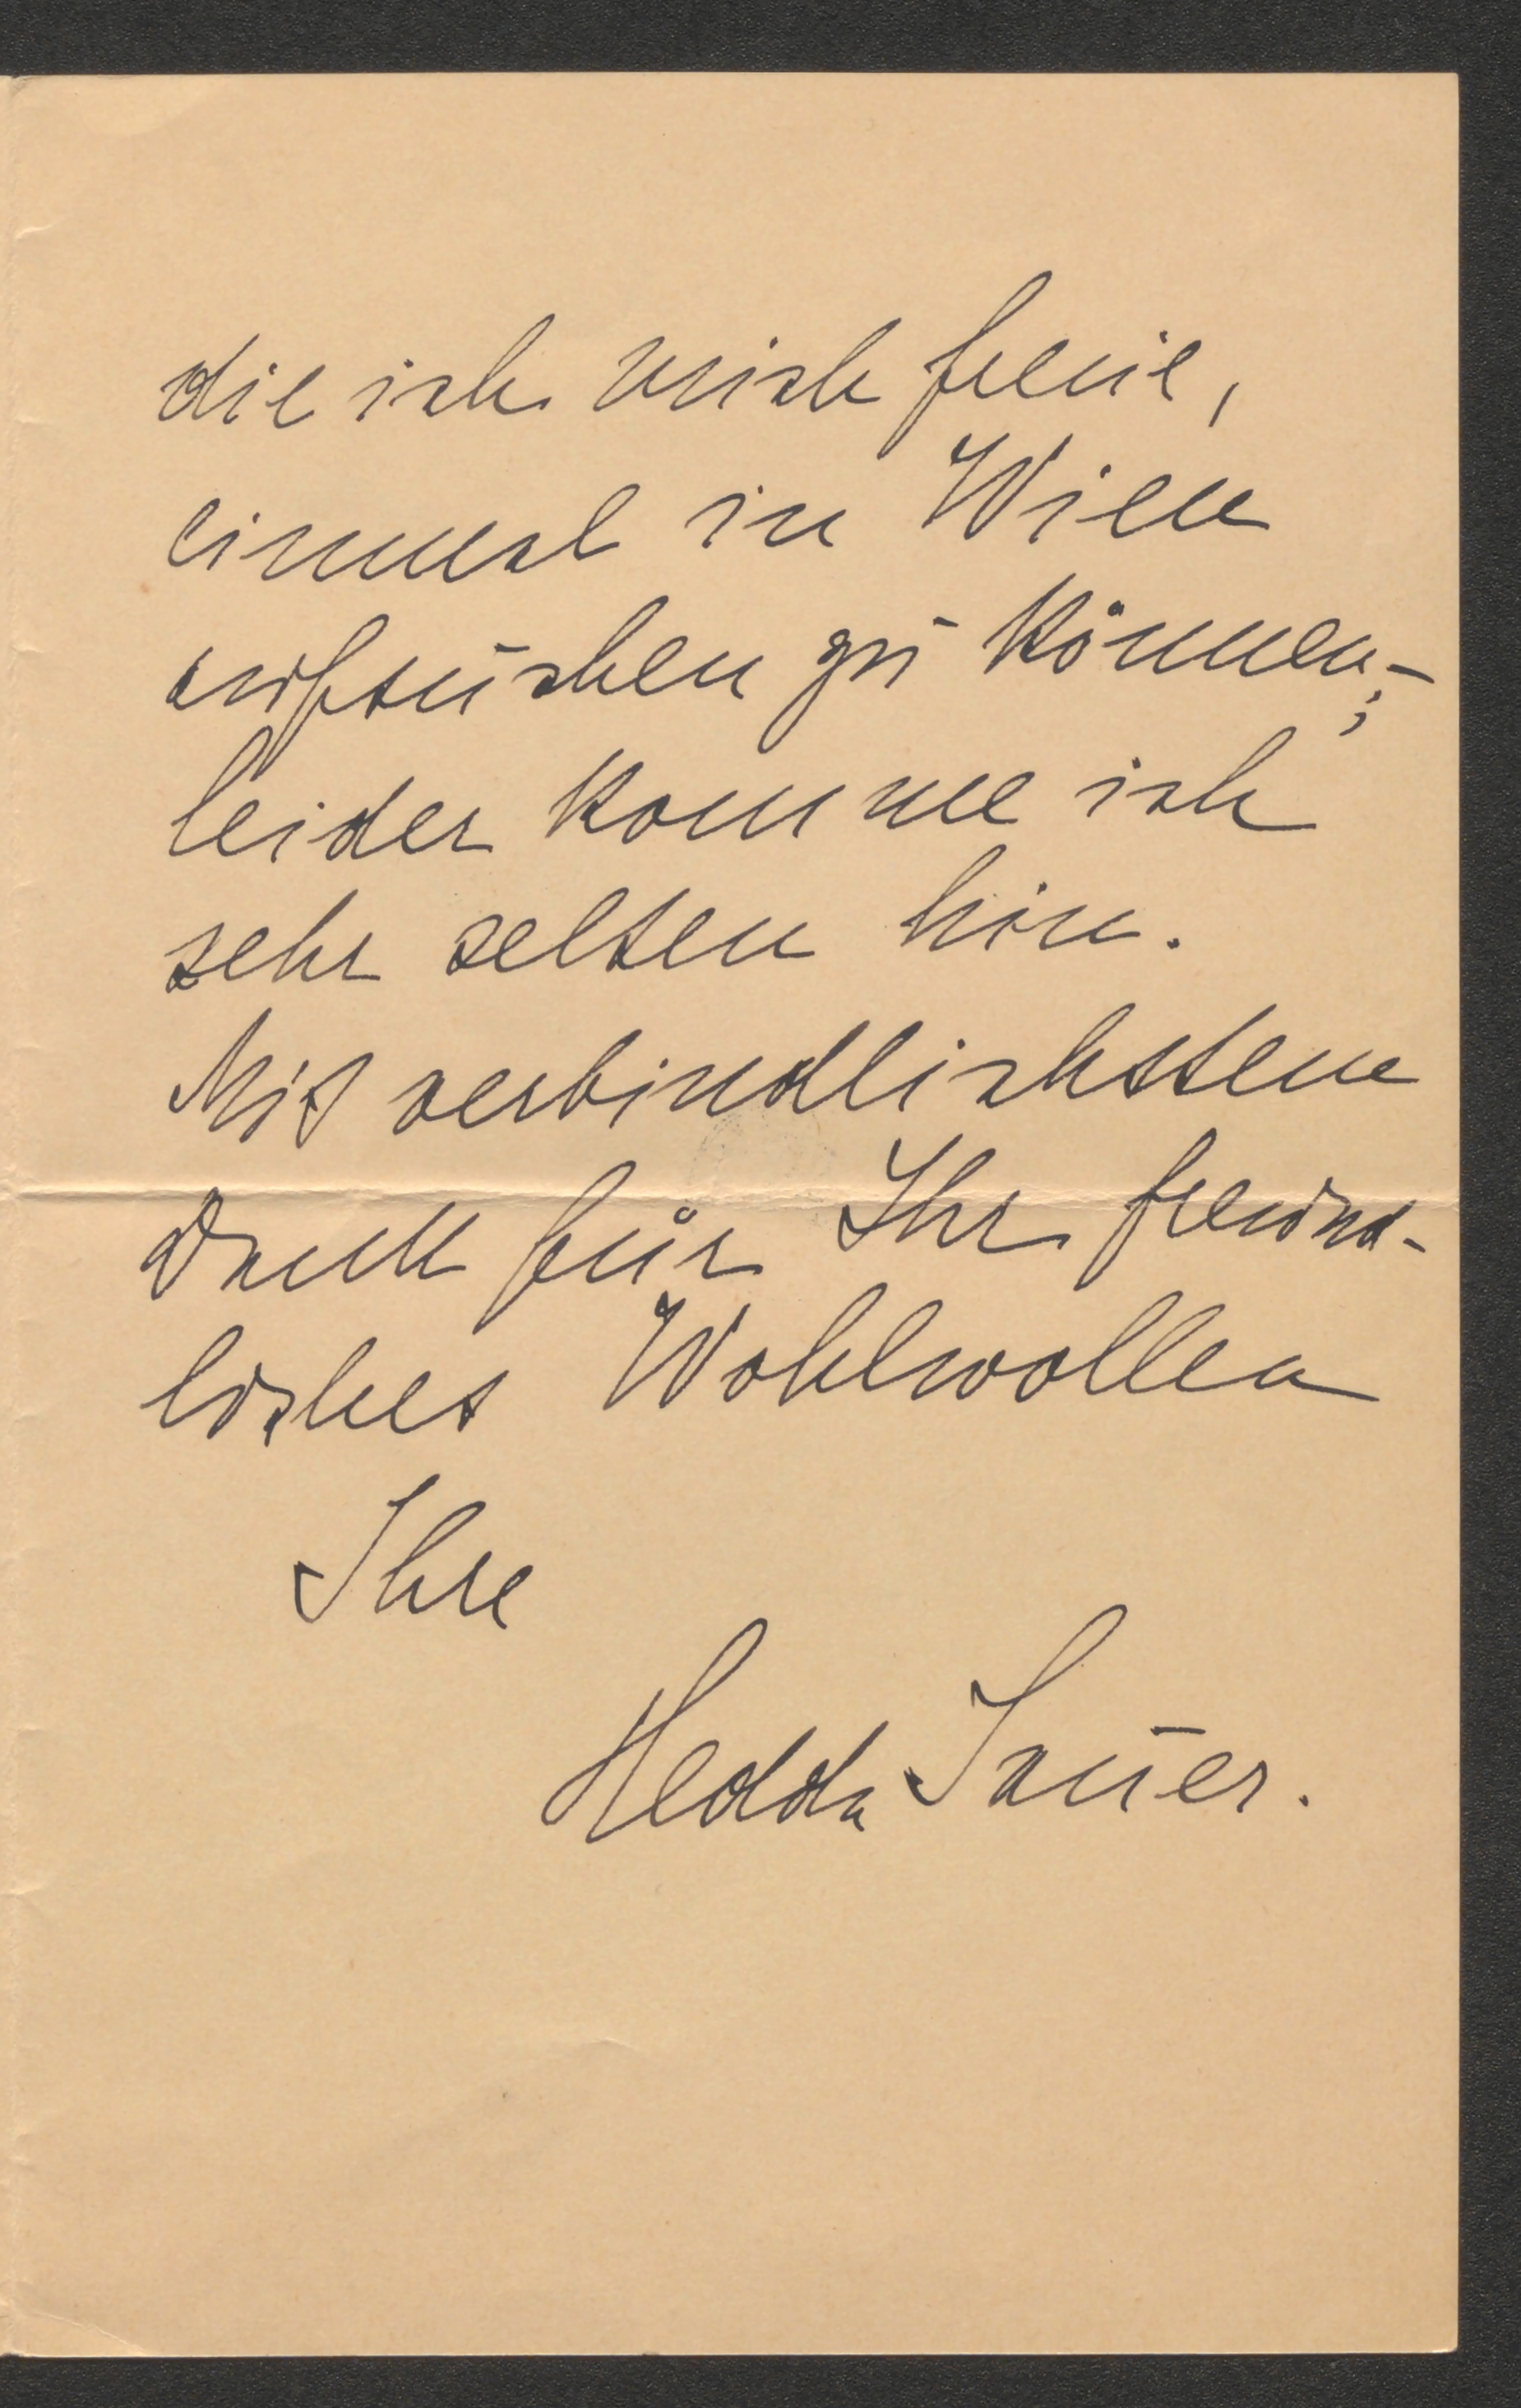 die ich mich freue,
einmal in Wien
aufsuchen zu können,–
leider komme ich
sehr selten hin.
Mit verbindlichstem
Dank für Ihr freund-
liches Wohlwollen
Ihre
Hedda Sauer.